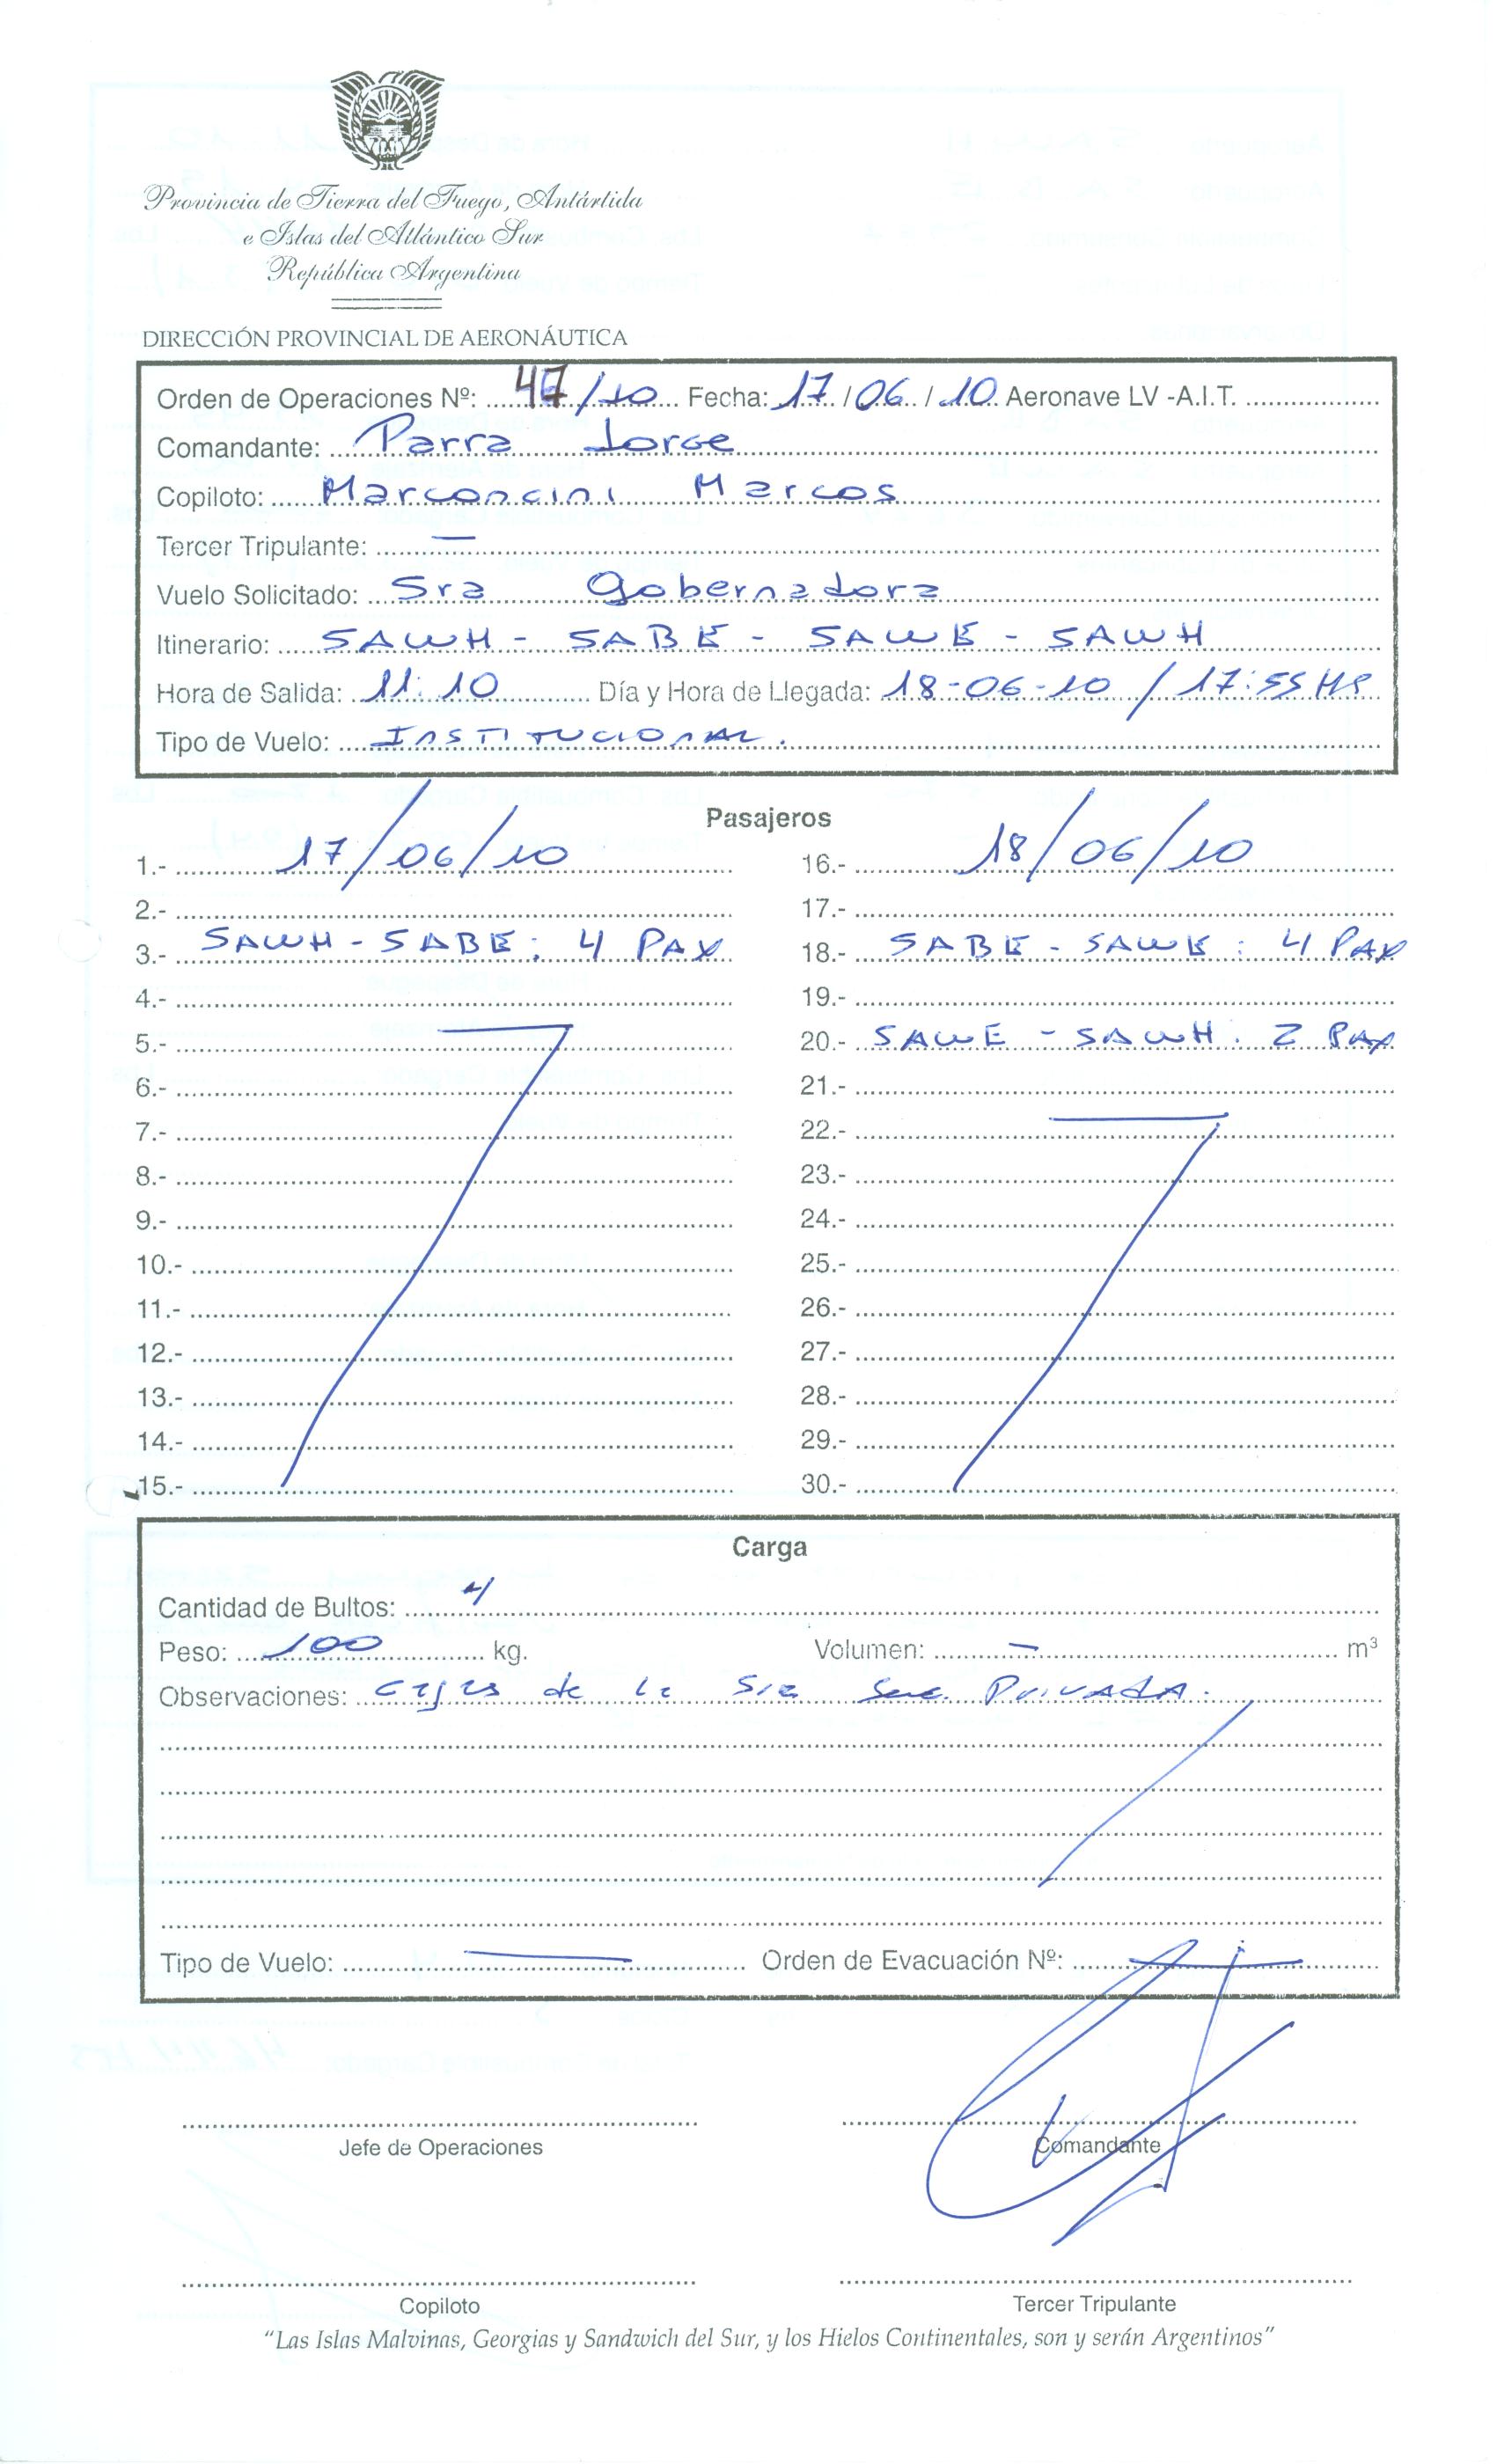 Provincia de Tierra del Fuego, Antártida
e Islas del Atlántico Sur
República Argentina
DIRECCIÓN PROVINCIAL DE AERONÁUTICA
Orden de Operaciones Nº: 47/10 Fecha: 17/06/10 Aeronave LV -A.I.T.
Comandante: Parra Jorge
Copiloto: Marconcini Marcos
Tercer Tripulante: —
Vuelo Solicitado: Sra Gobernadora
Itinerario: SAWH - SABE - SAWE - SAWH
Hora de Salida: 11:10 Día y Hora de Llegada: 18-06-10 / 17:55 Hs
Tipo de Vuelo: INSTITUCIONAL.
Pasajeros
1.- 17/06/10
2.-
3.- SAWH - SABE: 4 PAX
4.-
5.-
6.-
7.-
8.-
9.-
10.-
11.-
12.-
13.-
14.-
15.-
16.- 18/06/10
17.-
18.- SABE - SAWE: 4 PAX
19.-
20.- SAWE - SAWH: 2 PAX
21.-
22.-
23.-
24.-
25.-
26.-
27.-
28.-
29.-
30.-
Carga
Cantidad de Bultos: 4
Peso: 100 kg. Volumen: — m³
Observaciones: cajas de la Sra Sec. PRIVADA.
Tipo de Vuelo: — Orden de Evacuación Nº: —
Jefe de Operaciones Comandante
Copiloto Tercer Tripulante
"Las Islas Malvinas, Georgias y Sandwich del Sur, y los Hielos Continentales, son y serán Argentinos"